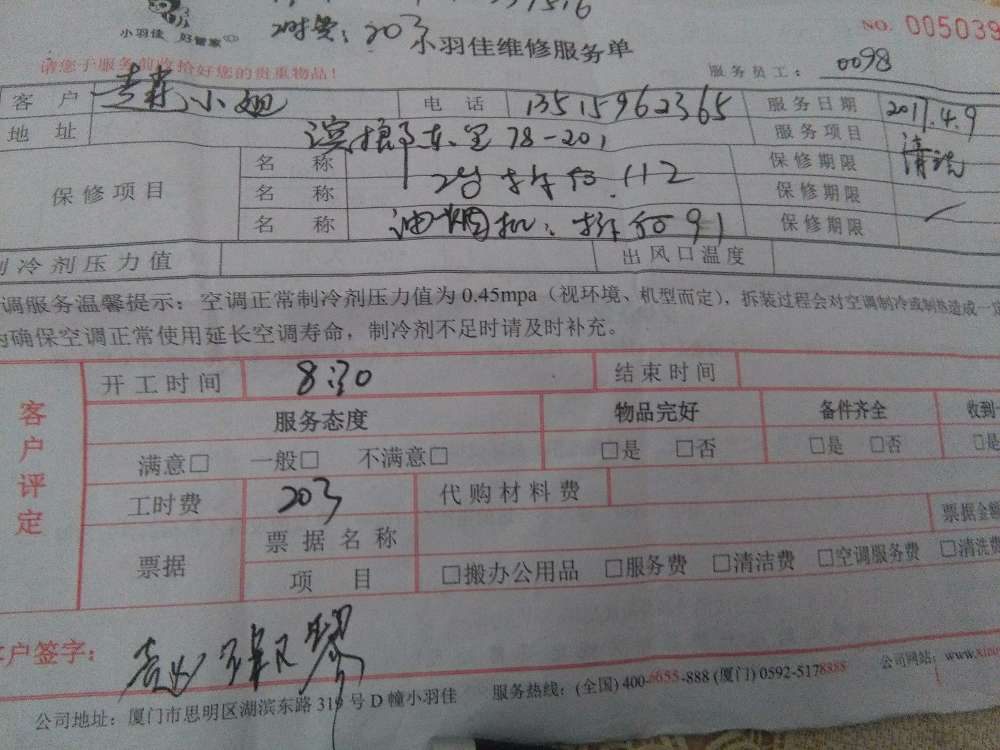 小羽佳 好管家
时费：203
小羽佳维修服务单
NO. 005039
请您于服务前收拾好您的贵重物品！
服务员工： 0098
客 户 小姐 电 话 13515962365 服务日期 2017.4.9
地 址 东里78-201 服务项目 清洗
保修项目 名 称 112 保修期限
名 称 油烟机：拆 91 保修期限
名 称 保修期限
制冷剂压力值 出风口温度
调服务温馨提示：空调正常制冷剂压力值为0.45mpa（视环境、机型而定），拆装过程会对空调制冷或制热造成一定
为确保空调正常使用延长空调寿命，制冷剂不足时请及时补充。
客户评定
开工时间 8:30 结束时间
服务态度 物品完好 备件齐全 收到
满意□ 一般□ 不满意□ □是 □否 □是 □否 □是
工时费 203 代购材料费
票据 票据名称 票据金额
项 目 □搬办公用品 □服务费 □清洁费 □空调服务费 □清洗费
客户签字：
公司地址：厦门市思明区湖滨东路319号D幢小羽佳 服务热线：(全国) 400-6655-888 (厦门) 0592-5178888 公司网站：www.